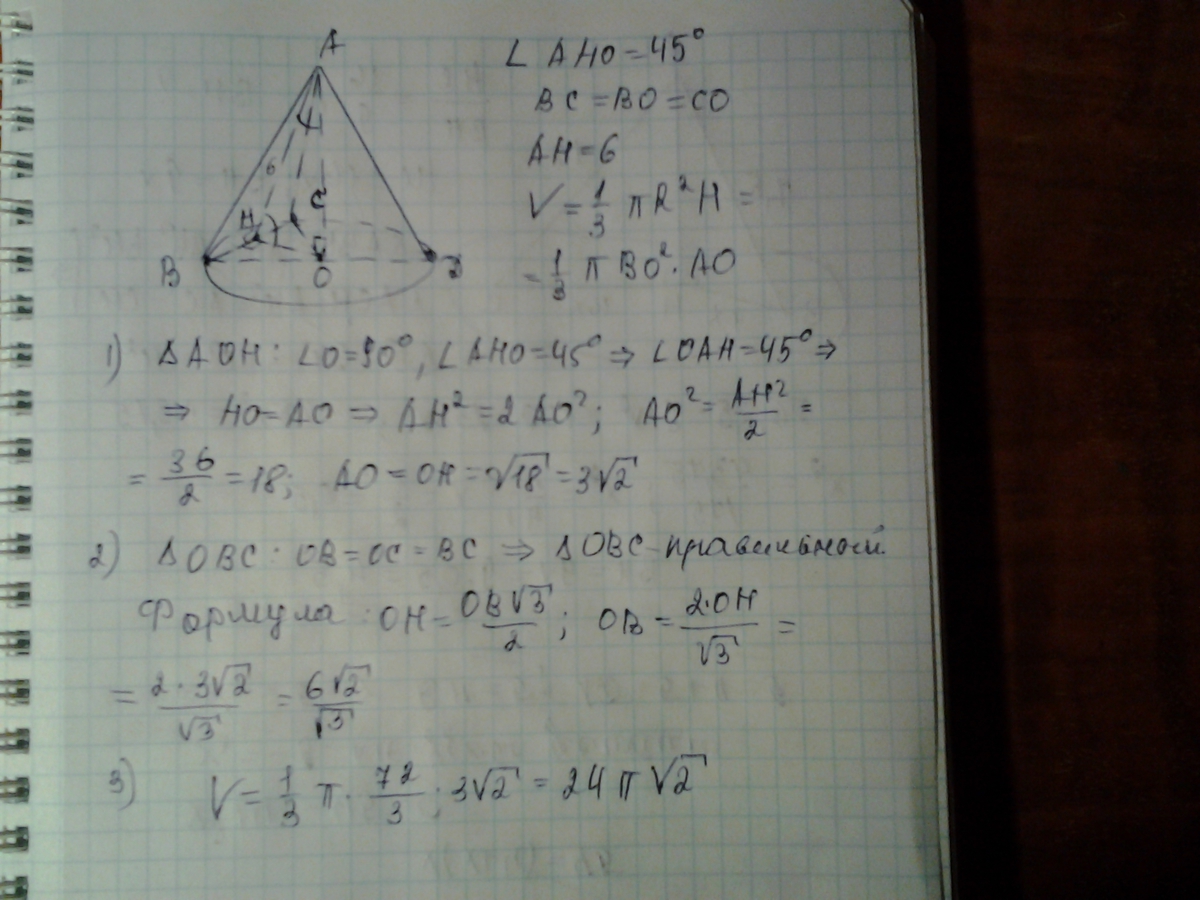 A
6
C
H
B
O
D
∠ AHO = 45°
BC = BO = CO
AH = 6
V = 1/3 πR²H =
= 1/3 π BO² · AO
1) ΔAOH: ∠O = 90°, ∠AHO = 45° ⇒ ∠OAH = 45° ⇒
⇒ HO = AO ⇒ AH² = 2AO²; AO² = AH²/2 =
= 36/2 = 18; AO = OH = √18 = 3√2
2) ΔOBC: OB = OC = BC ⇒ ΔOBC - правильный
Формула: OH = OB√3/2; OB = 2·OH/√3 =
= 2·3√2/√3 = 6√2/√3
3) V = 1/3 π · 72/3 ; 3√2 = 24π√2